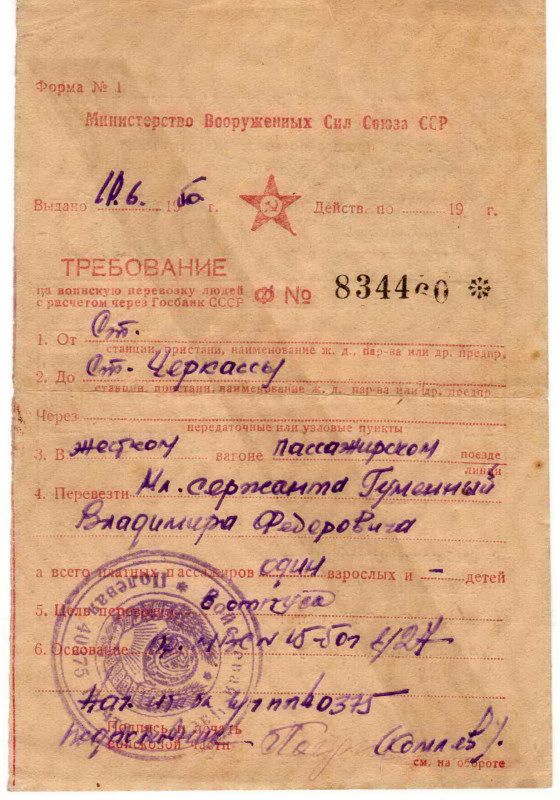 Форма № 1
Министерство Вооруженных Сил Союза ССР
Выдано 10.6. 1950 г. Действ. по 19 г.
ТРЕБОВАНИЕ
на воинскую перевозку людей
с расчетом через Госбанк СССР Ф № 834460 *
1. От Ст.
станции, пристани, наименование ж. д., пар-ва или др. предпр.
2. До Ст. Черкассы
станции, пристани, наименование ж. д. пар-ва или др. предпр
Через
передаточные или узловые пункты
3. В жестком вагоне пассажирском поезде
линии
4. Перевезти Мл. сержанта Гуменный
Владимира Федоровича
а всего платных пассажиров один взрослых и – детей
5. Цель перевозки В отпуск
6. Основание
Нач. штаба в/ч пп 40375
Подпись и печать
войсковой части
подполковник (Комлев).
см. на обороте
Полевая